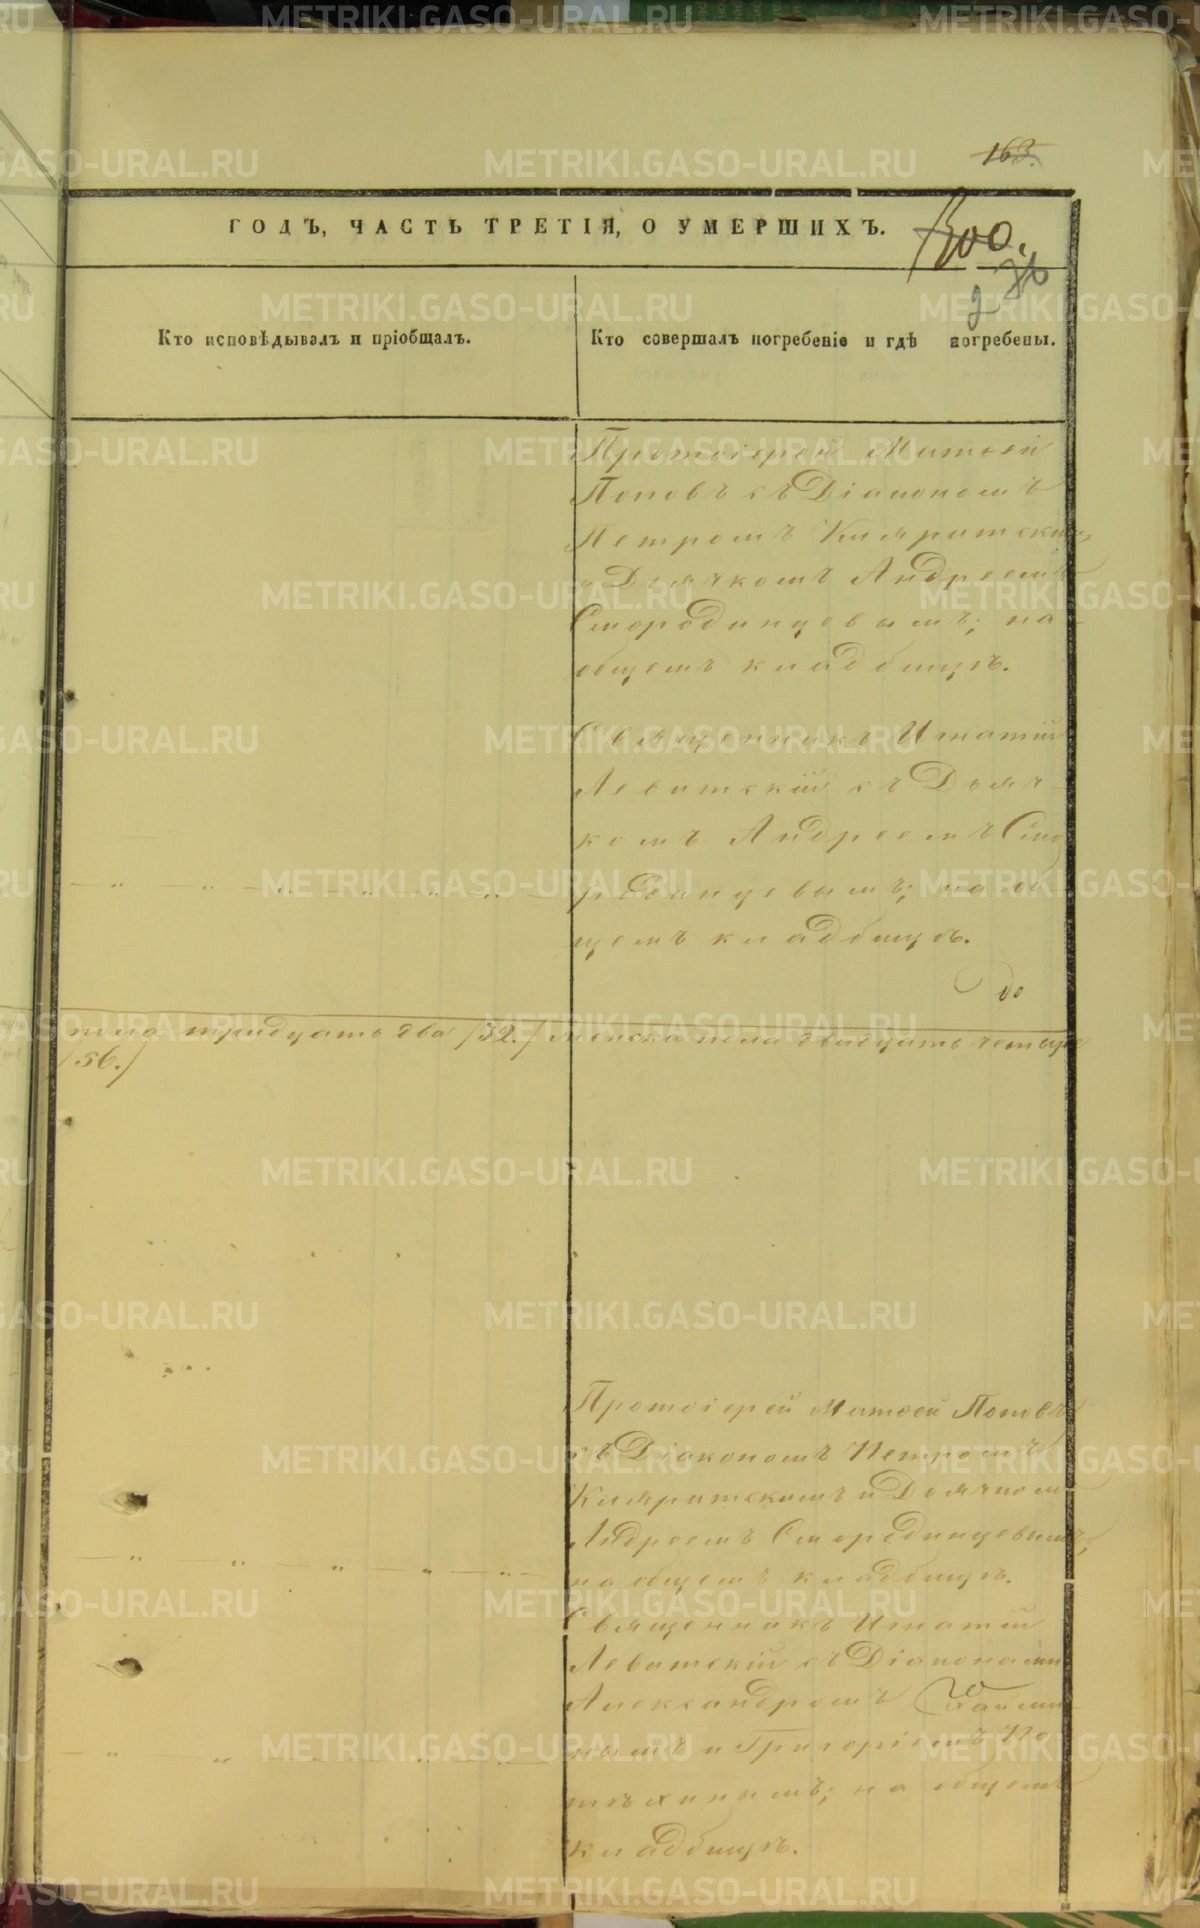 163.
ГОДЪ, ЧАСТЬ ТРЕТІЯ, О УМЕРШИХЪ.
Кто исповѣдывалъ и пріобщалъ.
Кто совершалъ погребеніе и гдѣ погребены.
Протоіерей Матѳей
Поповъ съ Діакономъ
Петромъ
и Дьячкомъ Андреемъ
Смородинцевымъ; на
общемъ кладбищѣ.
Священникъ Игнатій
Левитскій съ Дьяч-
комъ Андреемъ Смо
родинцевымъ; на об-
щемъ кладбищѣ.
до
пола тридцать два /32./ женска пола двадцать четыре
/56./
Протоіерей Матѳей Поповъ
съ Діакономъ Петромъ
и Дьячком
Андреемъ Смородинцевымъ;
на общемъ кладбищѣ.
Священникъ Игнатій
Левитскій съ Діаконами
Александромъ
и Григоріемъ По
тѣхинымъ; на общемъ
кладбищѣ.
METRIKI.GASO-URAL.RU